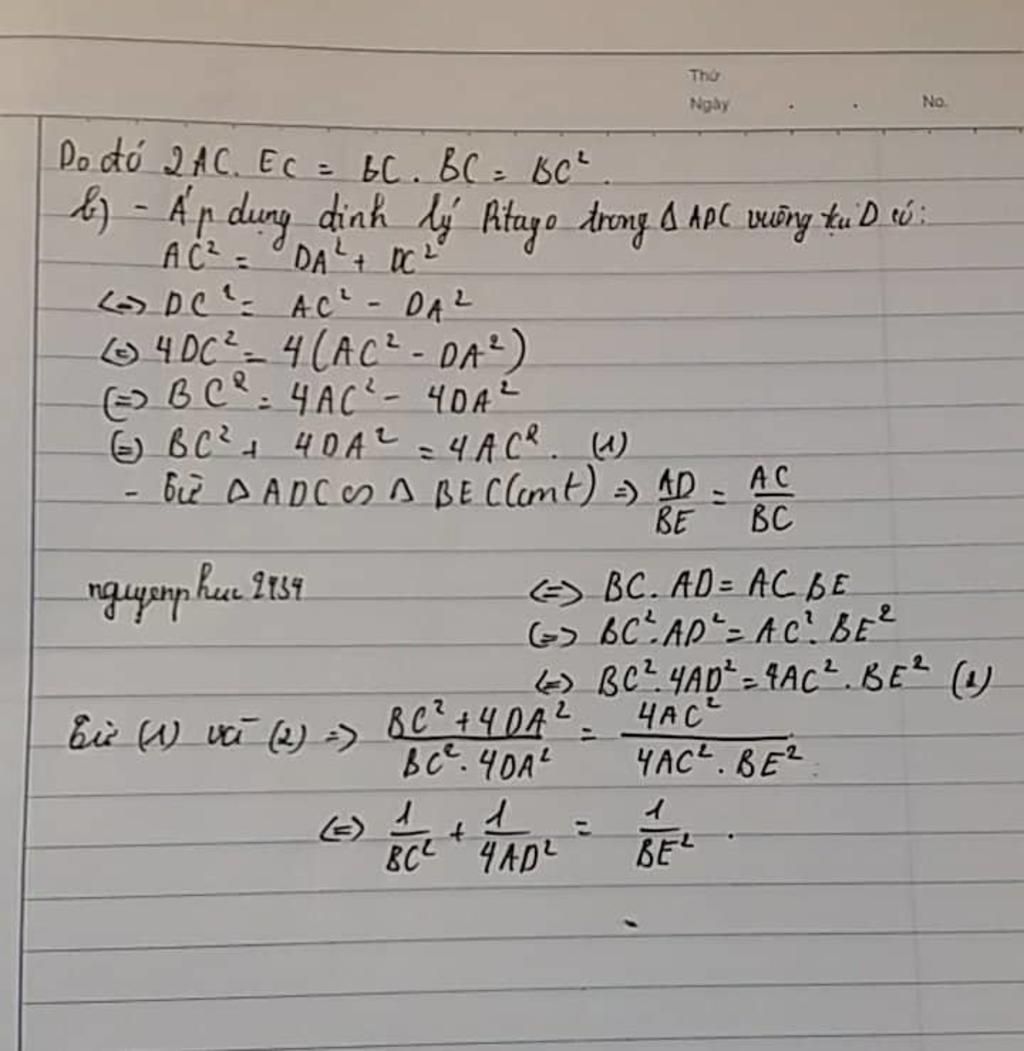 Thứ
Ngày . . No.
Do đó 2AC. EC = BC. BC = BC².
b) - Áp dụng định lý Pitago trong Δ ADC vuông tại D có:
AC² = DA² + DC²
<=> DC² = AC² - DA²
<=> 4DC² = 4(AC² - DA²)
<=> BC² = 4AC² - 4DA²
<=> BC² + 4DA² = 4AC². (1)
- Từ Δ ADC ∽ Δ BEC (cmt) => AD/BE = AC/BC
nguyenphuc2934 <=> BC. AD = AC. BE
<=> BC². AD² = AC². BE²
<=> BC². 4AD² = 4AC². BE² (2)
Từ (1) và (2) => (BC² + 4DA²)/(BC². 4DA²) = 4AC²/(4AC². BE²)
<=> 1/BC² + 1/4AD² = 1/BE².